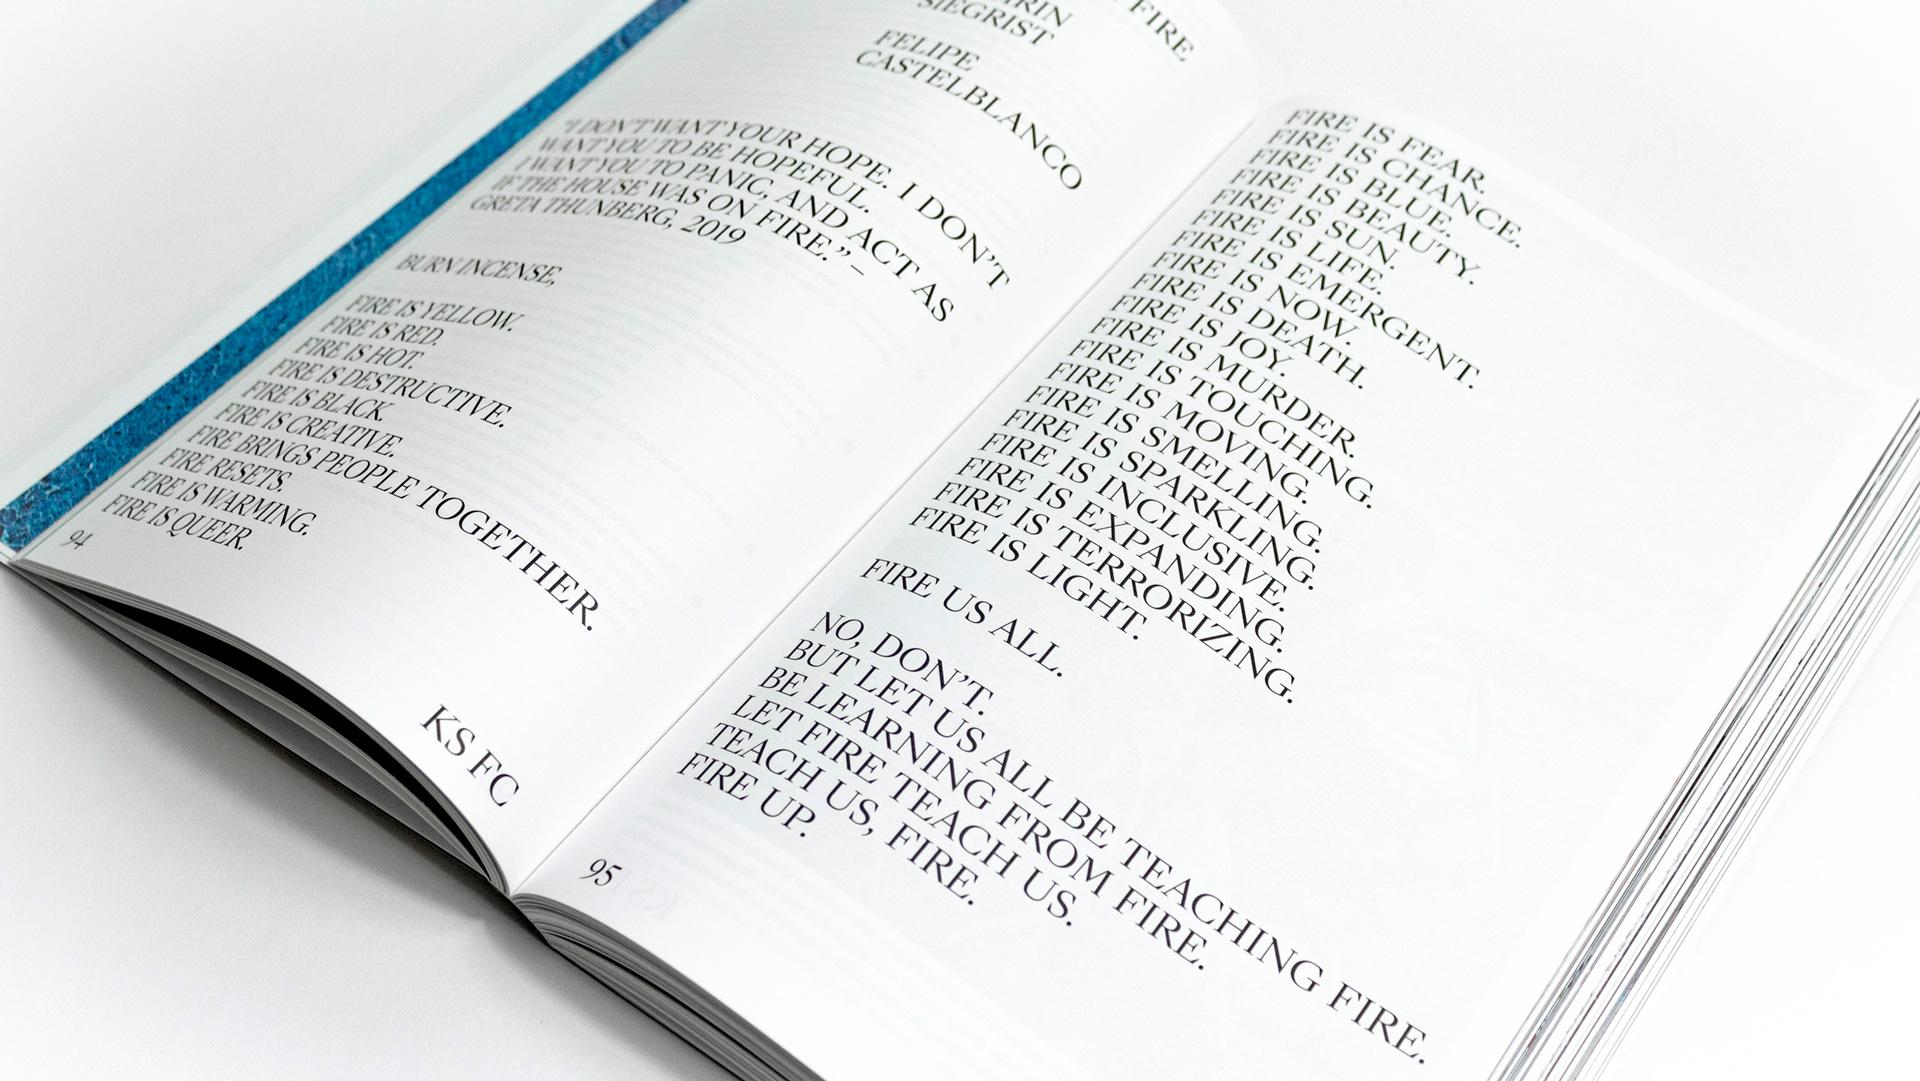 FIRE
SIEGRIST
FELIPE
CASTELBLANCO
"I DON'T WANT YOUR HOPE. I DON'T
WANT YOU TO BE HOPEFUL.
I WANT YOU TO PANIC, AND ACT AS
IF THE HOUSE WAS ON FIRE." –
GRETA THUNBERG, 2019
BURN INCENSE,
FIRE IS YELLOW.
FIRE IS RED.
FIRE IS HOT.
FIRE IS DESTRUCTIVE.
FIRE IS BLACK.
FIRE IS CREATIVE.
FIRE BRINGS PEOPLE TOGETHER.
FIRE RESETS.
FIRE IS WARMING.
FIRE IS QUEER.
94
KS FC
FIRE IS FEAR.
FIRE IS CHANCE.
FIRE IS BLUE.
FIRE IS BEAUTY.
FIRE IS SUN.
FIRE IS LIFE.
FIRE IS EMERGENT.
FIRE IS NOW.
FIRE IS DEATH.
FIRE IS JOY.
FIRE IS MURDER.
FIRE IS TOUCHING.
FIRE IS MOVING.
FIRE IS SMELLING.
FIRE IS SPARKLING.
FIRE IS INCLUSIVE.
FIRE IS EXPANDING.
FIRE IS TERRORIZING.
FIRE IS LIGHT.
FIRE US ALL.
NO, DON'T.
BUT LET US ALL BE TEACHING FIRE.
BE LEARNING FROM FIRE.
LET FIRE TEACH US.
TEACH US, FIRE.
FIRE UP.
95